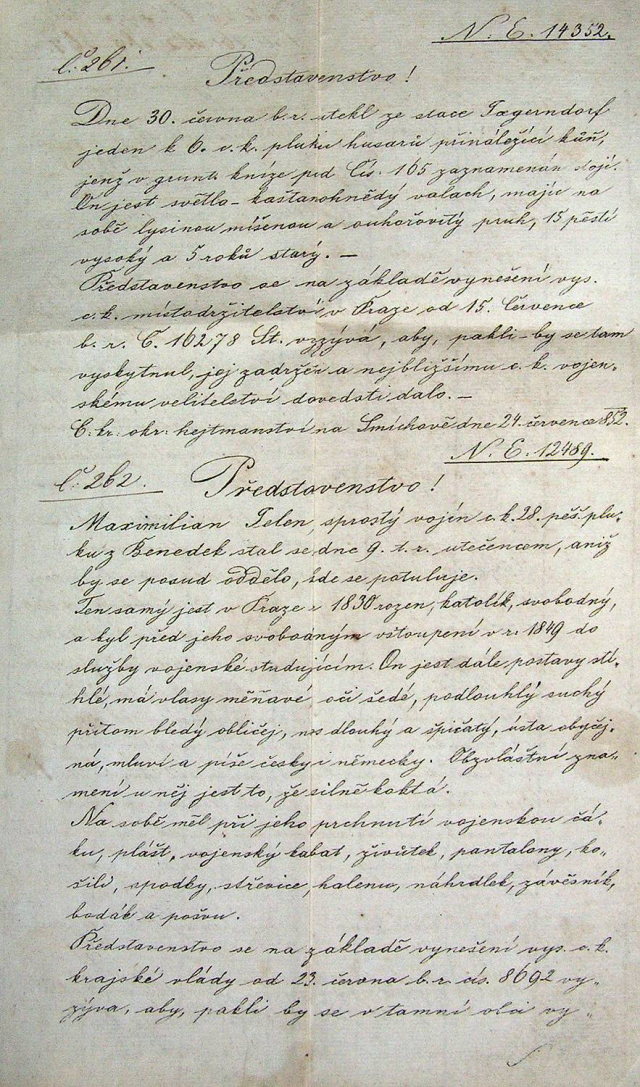 N. E. 14352.
č. 261.
Představenstvo!
Dne 30. června b. r. utekl ze stace Jægerndorf
jeden k 6. c. k. pluku husarů přináležící kůň,
jenž v grunt. knize pod Čís. 165 zaznamenán stojí.
On jest světlo-kaštanohnědý valach, maje na
sobě lysinou míšenou a ouhořovitý pruh, 15 pěstí
vysoký a 5 roků starý. —
Představenstvo se na základě vynešení vys.
c. k. místodržitelství v Praze od 15. Července
b. r. Č. 16278 St. vzzývá, aby, pakli-by se tam
vyskytnul, jej zadržeti a nejbližšímu c. k. vojen-
skému velitelství dovedsti dalo. —
C. kr. okr. hejtmanství na Smíchově dne 24. července 853.
N. E. 12489.
č. 262.
Představenstvo!
Maximilian Jelen, sprostý vojín c. k. 28. pěš. plu-
ku z Benedek stal se dne 9. t. r. utečencem, aniž
by se posud oddělo, kde se potuluje.
Ten samý jest v Praze r 1830 rozen, katolík, svobodný,
a byl před jeho svobodným vstoupení v r. 1849 do
služby vojenské studujícím. On jest dále postavy ští-
hlé, má vlasy měňavé oči šedé, podlouhlý suchý
přitom bledý obličej, nos dlouhý a špičatý, ústa obyčej-
ná, mluví a píše česky i německy. Obzvláštní zna-
mení u něj jest to, že silně koktá.
Na sobě měl při jeho prchnutí vojenskou čá-
ku, plášť, vojenský kabat, živůtek, pantalony, ko-
šili, spodky, střevice, halenu, náhrdlek, závěsník,
bodák a pošvu.
Představenstvo se na základě vynešení vys. c. k.
krajské vlády od 23. června b. r. čís. 8692 vy-
zýva, aby, pakli by se v tamní obci vy-